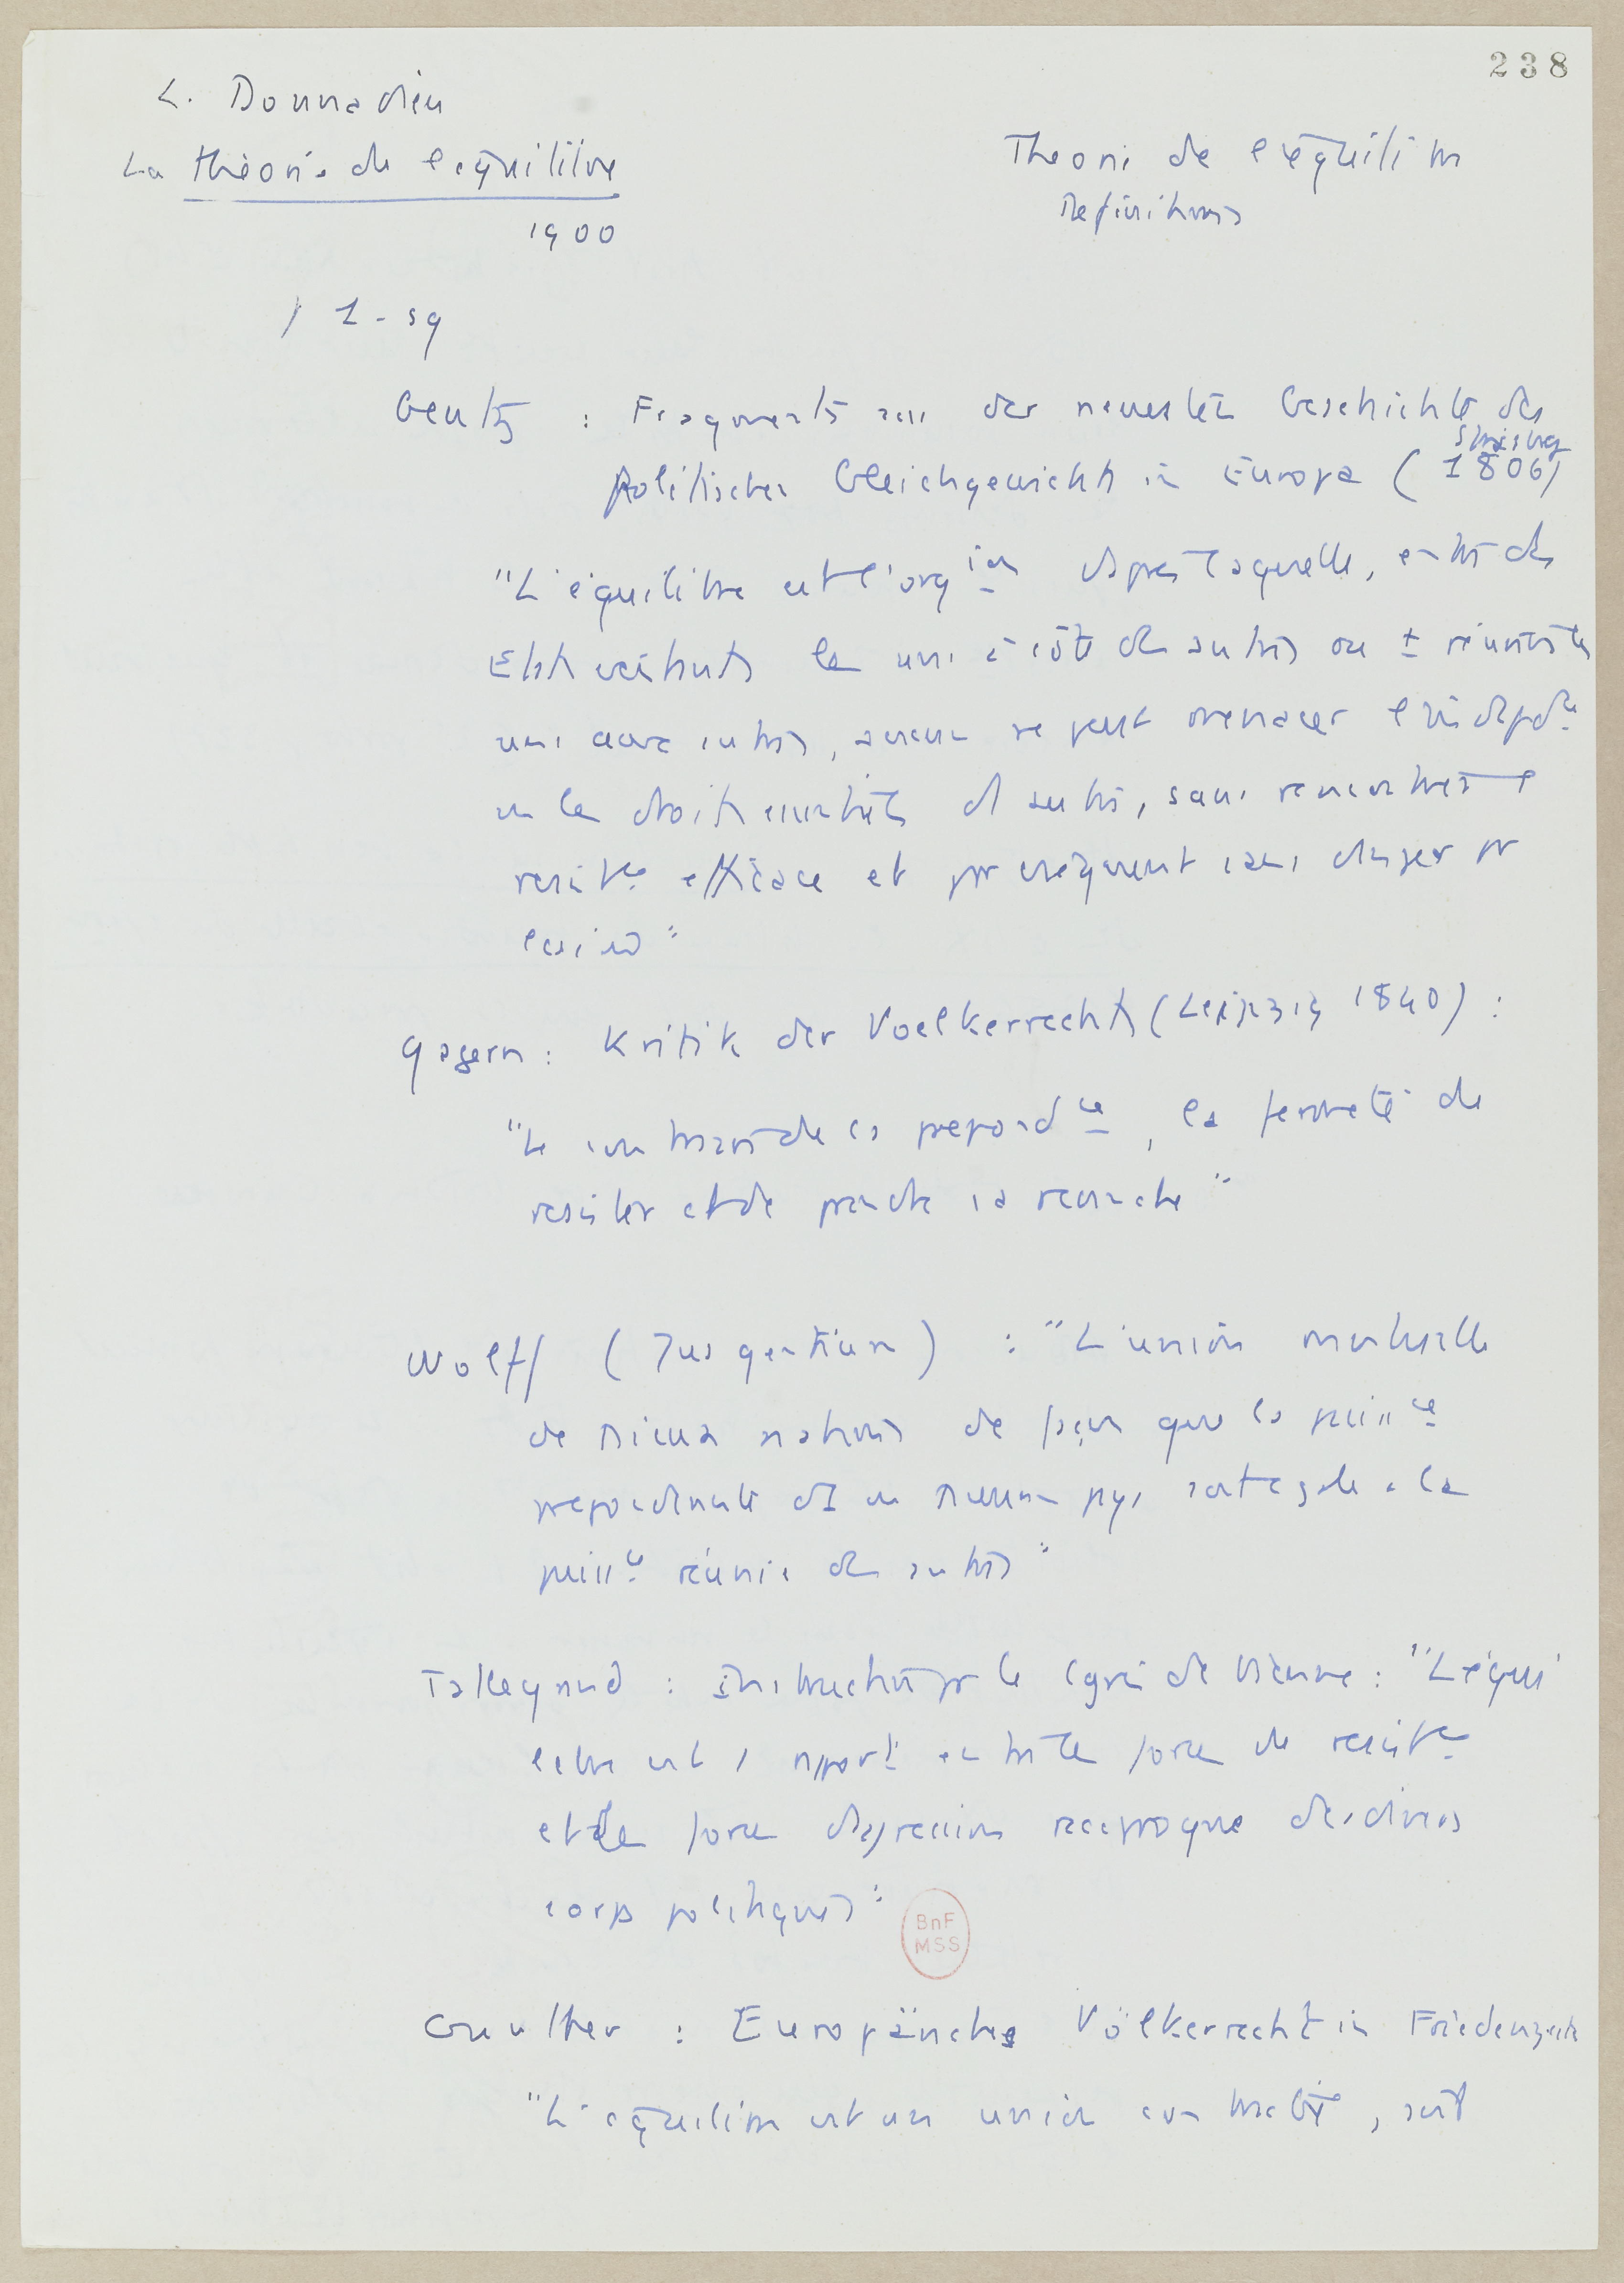 238
L. Donnadieu
La théorie de l'équilibre
1900
Théorie de l'équilibre
Définitions
p 1-sq
Gentz : Fragments aus der neuesten Geschichte des
Politischen Gleichgewichts in Europa (1806)
"L'équilibre est l'org ion d'après laquelle, entre des
Etats existants les uns à côté des autres ou ± réunis les
uns aux autres, aucun ne peut menacer l'indépdce
ou les droits essentiels d'autres, sans rencontrer de
résistce efficace et par conséquent sans danger pr
lui
Gagern : Kritik der Voelkerrechts (Leipzig 1840) :
"Le contraire de la prépondce, la fermeté de
résister et de prendre sa revanche"
Wolff (Jus gentium) : "L'union mutuelle
de plusieurs nations de façon que la puissce
prépondérante d'1 ou plusieurs pays soit égale à la
puissce réunie des autres"
Talleyrand : Instructions pr le Cgrès de Vienne : "L'équi
libre est 1 rapport entre les forces de résistce
et les forces d'agression réciproque des divers
corps politiques"
BnF
MSS
Gunther : Europäisches Völkerrecht in Friedenszeiten
"L'équilibre est une union contractée, soit